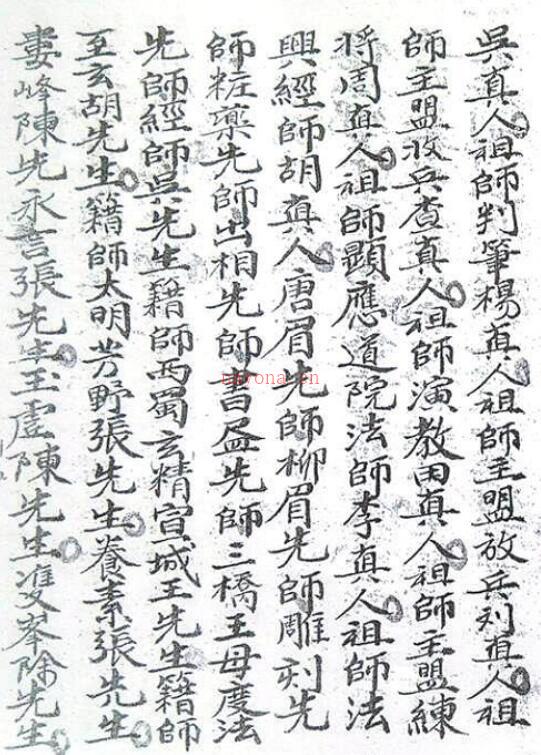 吳真人祖師判筆楊真人祖師主盟放兵刘真人祖
師主盟收兵查真人祖師演教田真人祖師主盟練
将周真人祖師顯應道院法師李真人祖師法
興經師胡真人唐眉先師柳眉先師雕刻先
師粧藥先師出相先師書盆先師三橋王母度法
先師經師吳先生籍師西蜀玄精宣城王先生籍師
至玄胡先生籍師太明芳野張先生養素張先生
婁峰陳先永言張先生玉虛陳先生雙峯除先生